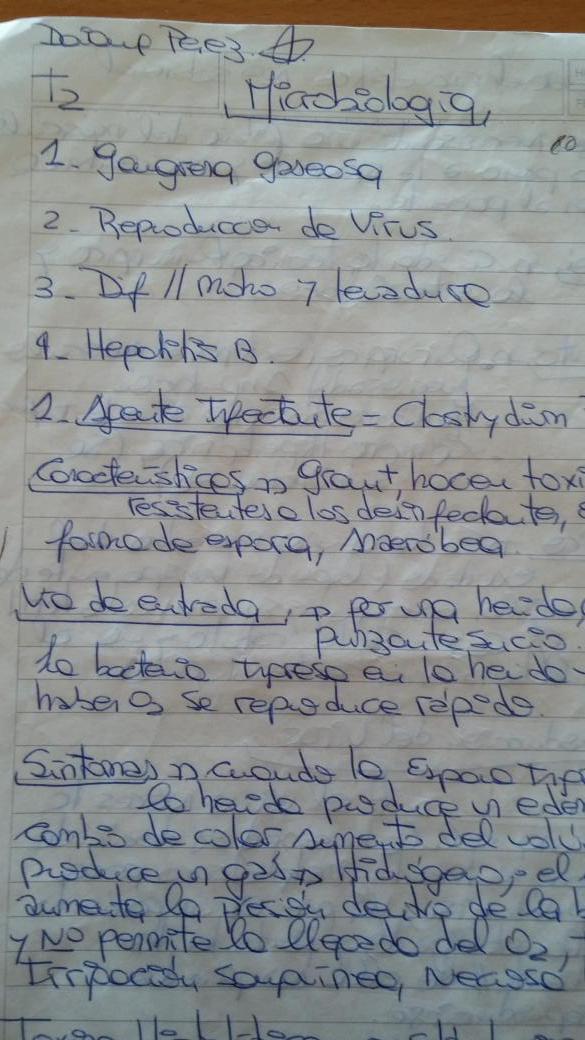 Perez.
T2 Microbiología
10
1. gangrena gaseosa
2- Reproduccion de Virus.
3- Dif // moho y levadura
4- Hepatitis B.
1- Agente infectante = Clostrydium
Características → gram+, hacen toxi
resistentes a los desinfectante,
forma de espora, Anaeróbea
Via de entrada, → por una herida,
punzante sucio.
la bacteria ingresa en la herida
haber O2 se reproduce rápido.
Síntomas → cuando la espora
la herida produce un edem
cambio de color, aumento del volú
produce un gas → Hidrógeno, el
aumenta la presión dentro de la
y NO permite la llegada del O2,
irrigación sanguínea, Necrosis